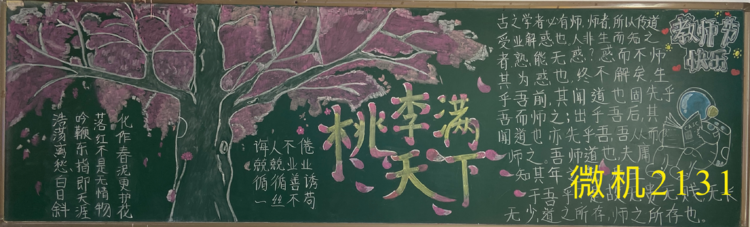 浩荡离愁白日斜
吟鞭东指即天涯
落红不是无情物
化作春泥更护花
诲人不倦
兢兢业业
循循善诱
一丝不苟
桃李满
天下
古之学者必有师,师者,所以传道
受业解惑也,人非生而知之
者,熟能无惑?惑而不师
其为惑也终不解矣生
乎吾前,其闻道也固先乎
吾而师之;出乎吾后,其
闻道也亦先乎吾,吾从师
师之,吾师道也,夫庸
知其年
于吾乎
无长
无少,道之所存,师之所存也。
教师节
快乐
微机2131